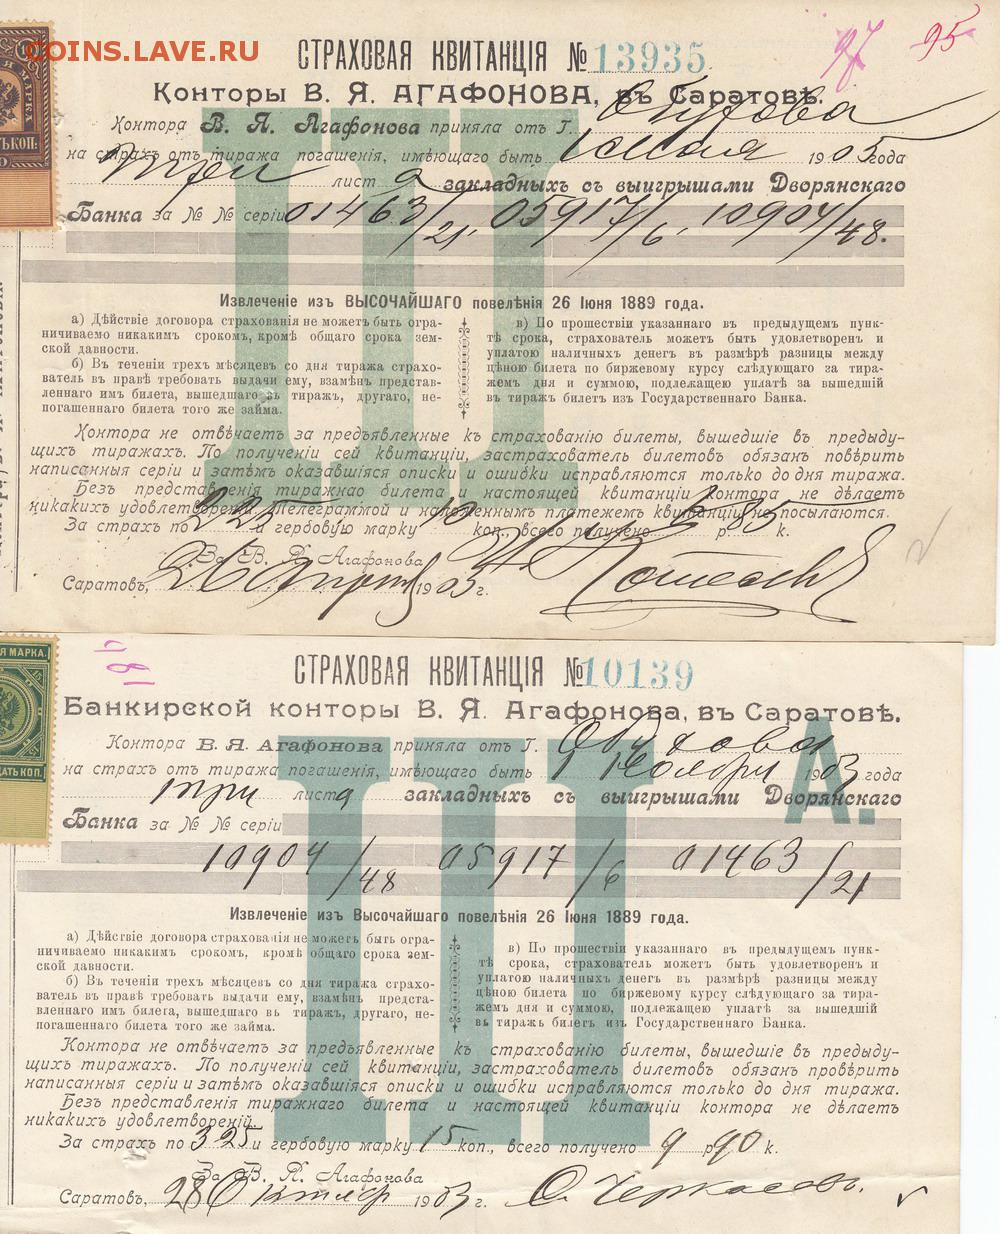 COINS.LAVE.RU
СТРАХОВАЯ КВИТАНЦІЯ № 13935
97 95
Конторы В. Я. АГАФОНОВА, въ Саратовѣ.
Контора В. Я. Агафонова приняла отъ Г.
на страхъ отъ тиража погашенія, имѣющаго быть 1 Мая 1905 года
три листа закладныхъ съ выигрышами Дворянскаго
Банка за № № серіи 01463/21, 05917/6, 10904/48.
Извлеченіе изъ ВЫСОЧАЙШАГО повелѣнія 26 Іюня 1889 года.
а) Дѣйствіе договора страхованія не можетъ быть огра-
ничиваемо никакимъ срокомъ, кромѣ общаго срока зем-
ской давности.
б) Въ теченіи трехъ мѣсяцевъ со дня тиража страхо-
ватель въ правѣ требовать выдачи ему, взамѣнъ представ-
леннаго имъ билета, вышедшаго въ тиражъ, другаго, не-
погашеннаго билета того же займа.
в) По прошествіи указаннаго въ предыдущемъ пунк-
тѣ срока, страхователь можетъ быть удовлетворенъ и
уплатою наличныхъ денегъ въ размѣрѣ разницы между
цѣною билета по биржевому курсу слѣдующаго за тира-
жемъ дня и суммою, подлежащею уплатѣ за вышедшій
въ тиражъ билетъ изъ Государственнаго Банка.
Контора не отвѣчаетъ за предъявленные къ страхованію билеты, вышедшіе въ предыду-
щихъ тиражахъ. По полученіи сей квитанціи, застрахователь билетовъ обязанъ повѣрить
написанныя серіи и затѣмъ оказавшіяся описки и ошибки исправляются только до дня тиража.
Безъ представленія тиражнаго билета и настоящей квитанціи контора не дѣлаетъ
никакихъ удовлетвореній. Телеграммой и наложеннымъ платежемъ квитанціи не посылаются.
За страхъ по 225 и гербовую марку 10 коп., всего получено 6 р. 85 к.
За В. Я. Агафонова
Саратовъ, 26 Апрѣля 1905 г.
Я МАРКА.
ДАТЬ КОП.
СТРАХОВАЯ КВИТАНЦІЯ № 10139
Банкирской конторы В. Я. Агафонова, въ Саратовѣ.
Контора В. Я. Агафонова приняла отъ Г.
на страхъ отъ тиража погашенія, имѣющаго быть 1 Ноября 1903 года
А.
три листа закладныхъ съ выигрышами Дворянскаго
Банка за № № серіи
10904/48 05917/6 01463/21
Извлеченіе изъ Высочайшаго повелѣнія 26 Іюня 1889 года.
а) Дѣйствіе договора страхованія не можетъ быть огра-
ничиваемо никакимъ срокомъ, кромѣ общаго срока зем-
ской давности.
б) Въ теченіи трехъ мѣсяцевъ со дня тиража страхо-
ватель въ правѣ требовать выдачи ему, взамѣнъ предста-
вленнаго имъ билета, вышедшаго въ тиражъ, другаго, не-
погашеннаго билета того же займа.
в) По прошествіи указаннаго въ предыдущемъ пунк-
тѣ срока, страхователь можетъ быть удовлетворенъ и
уплатою наличныхъ денегъ въ размѣрѣ разницы между
цѣною билета по биржевому курсу слѣдующаго за тира-
жемъ дня и суммою, подлежащею уплатѣ за вышедшій
въ тиражъ билетъ изъ Государственнаго Банка.
Контора не отвѣчаетъ за предъявленные къ страхованію билеты, вышедшіе въ предыду-
щихъ тиражахъ. По полученіи сей квитанціи, застрахователь билетовъ обязанъ провѣрить
написанныя серіи и затѣмъ оказавшіяся описки и ошибки исправляются только до дня тиража.
Безъ представленія тиражнаго билета и настоящей квитанціи контора не дѣлаетъ
никакихъ удовлетвореній.
За страхъ по 325 и гербовую марку 15 коп., всего получено 9 р. 90 к.
За В. Я. Агафонова
Саратовъ, 28 Октября 1903 г. Черкасовъ.